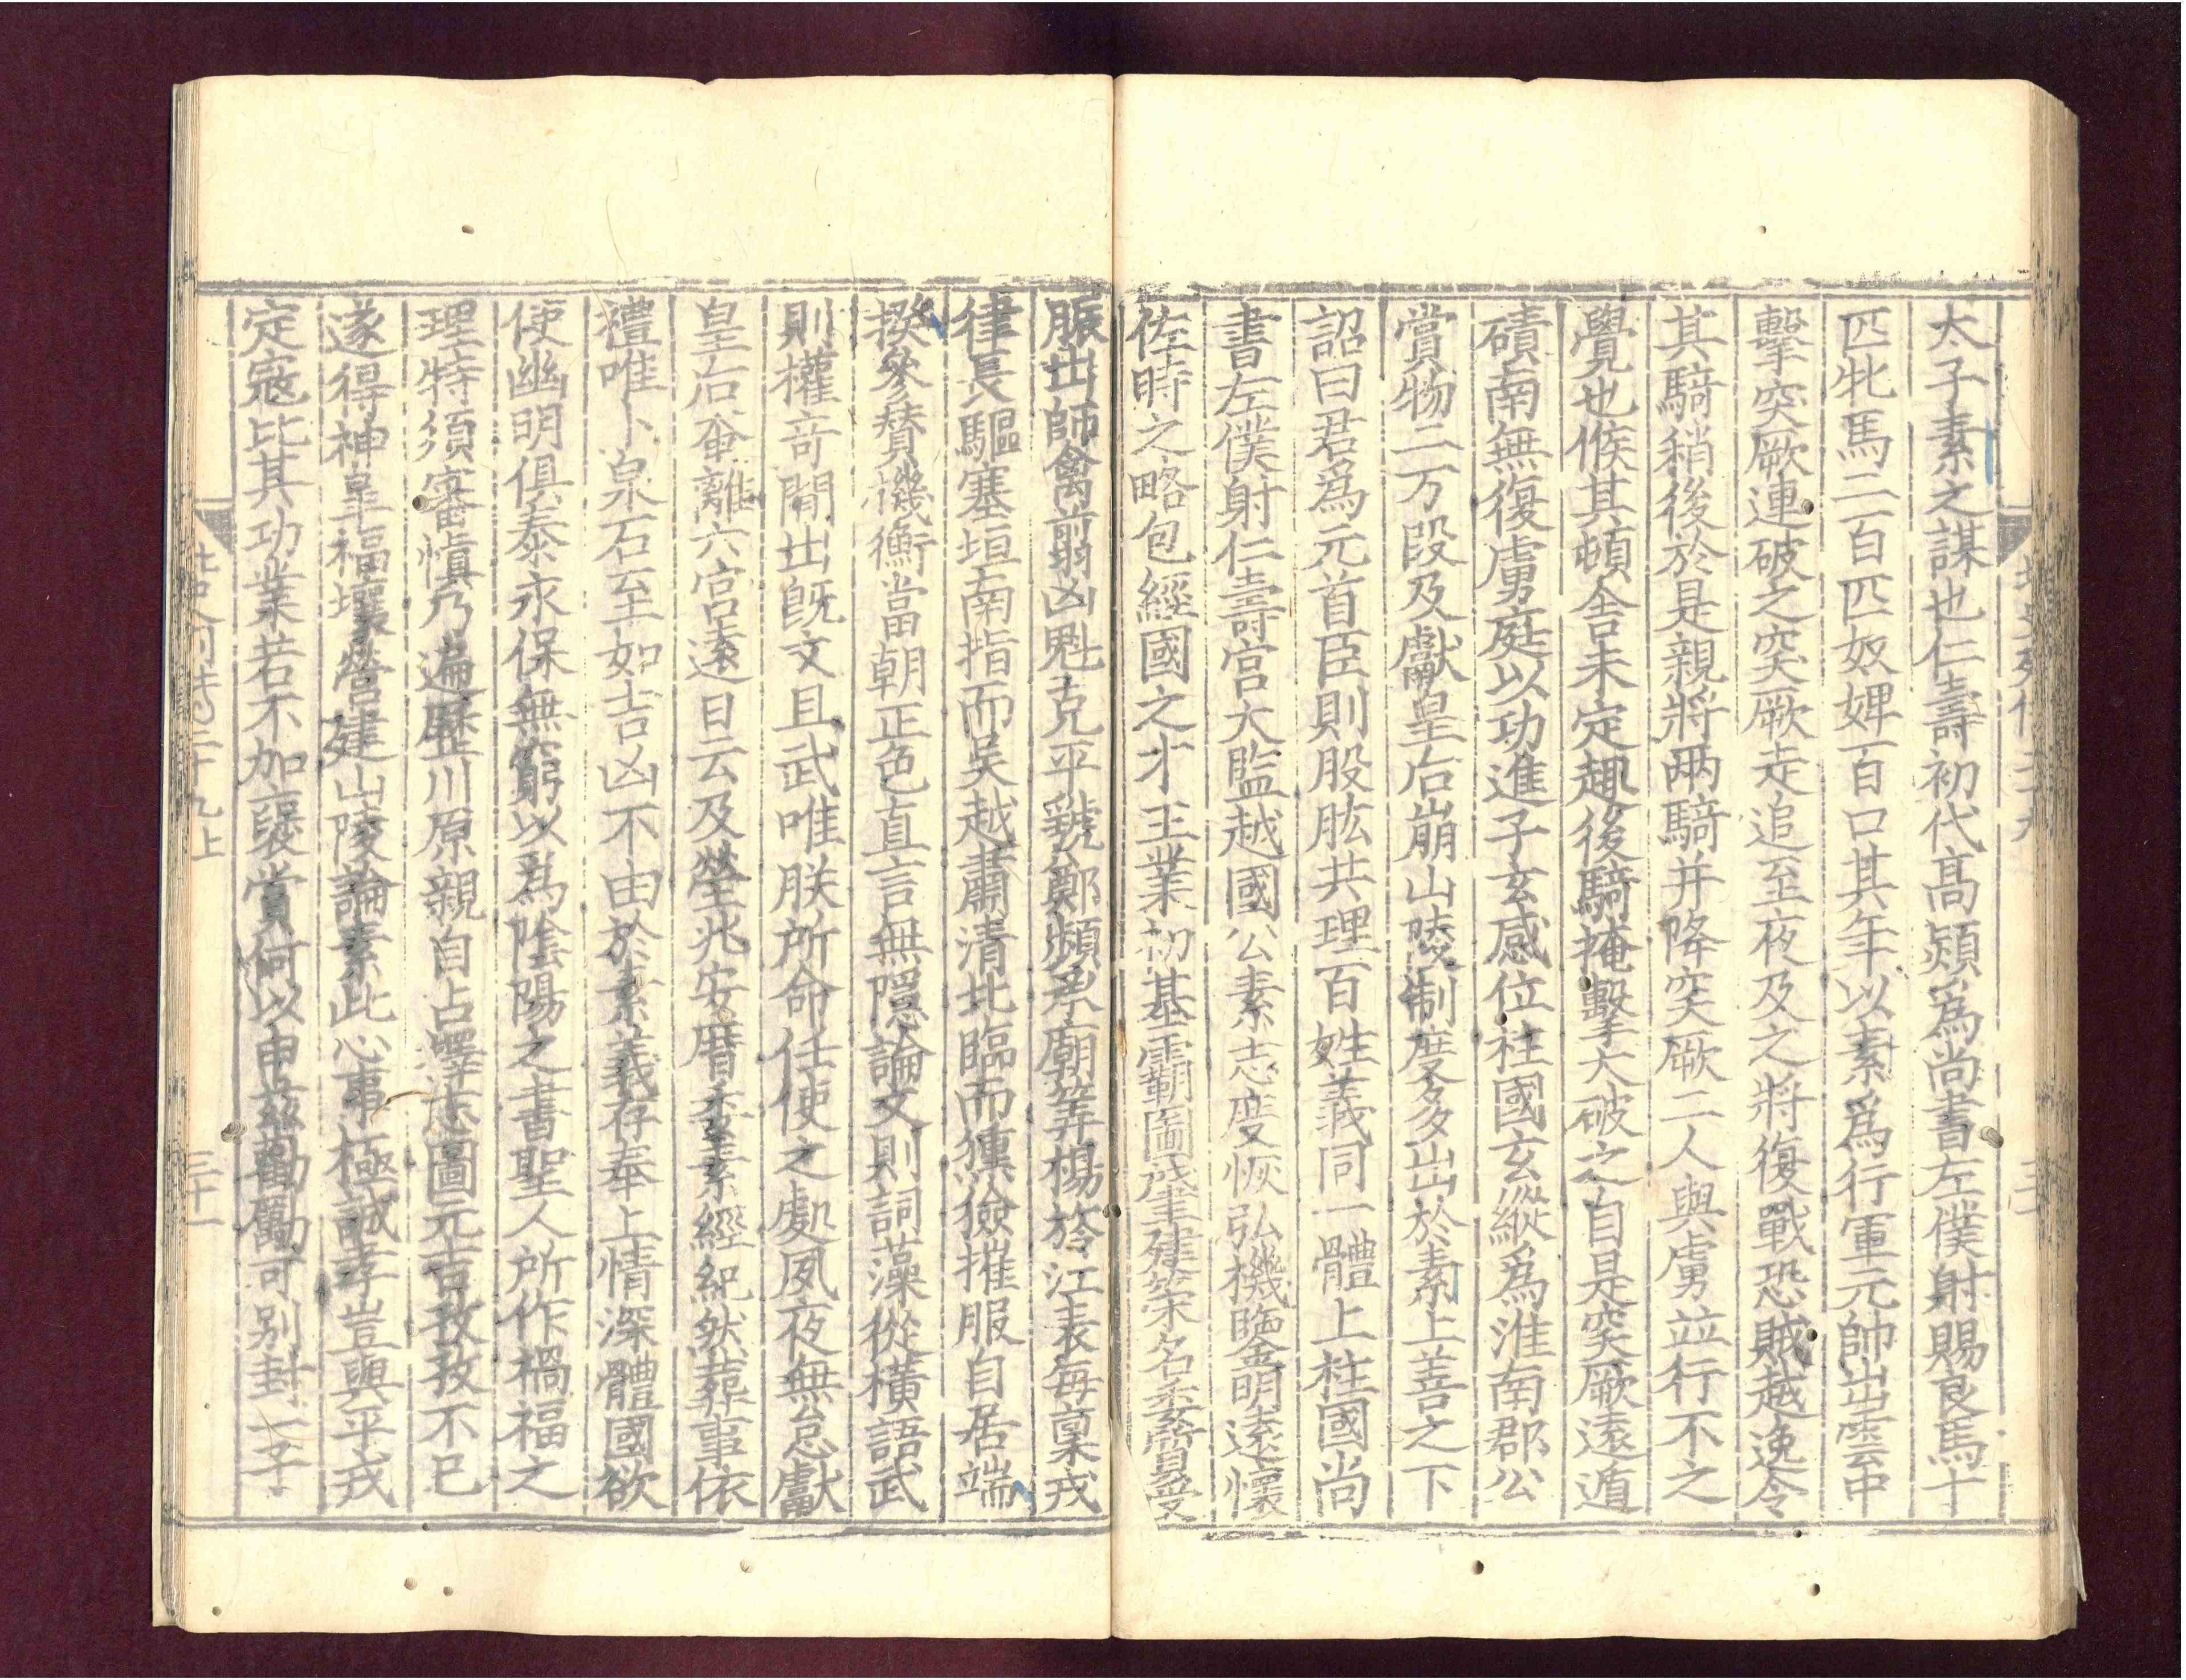 太子素之謀也仁壽初代髙熲爲尚書左僕射賜良馬十
匹牝馬二百匹奴婢百口其年以素爲行軍元帥出雲中
擊突厥連破之突厥走追至夜及之將復戰恐賊越逸令
其騎稍後於是親將兩騎并降突厥二人與虜並行不之
覺也候其頓舍未定趣後騎掩擊大破之自是突厥遠遁
磧南無復虜庭以功進子玄感位柱國玄縱爲淮南郡公
賞物二万段及獻皇后崩山陵制度多出於素上善之下
詔曰君爲元首臣則股肱共理百姓義同一體上柱國尚
書左僕射仁壽宫大監越國公素志度恢弘機鑒明遠懷
佐時之略包經國之才王業初基霸圖肇建策名委質受
脤出師禽翦凶魁克平虢鄭頻承廟筭揚旍江表每稟戎
律長驅塞垣南指而吳越肅清北臨而獯獫摧服自居端
揆參贊機衡當朝正色直言無隱論文則詞藻從橫語武
則權竒間出旣文且武唯朕所命任使之處夙夜無怠獻
皇后奄離六宫遠日云及塋兆安厝委素經紀然葬事依
禮唯卜泉石至如吉凶不由於素義存奉上情深體國欲
使幽明俱泰永保無窮以爲陰陽之書聖人所作禍福之
理特須審慎乃遍歷川原親自占擇志圖元吉孜孜不已
遂得神臯福壤營建山陵論素此心事極誠孝豈與平戎
定寇比其功業若不加褒賞何以申茲勸勵可别封一子
北史列傳二十九上
三十一